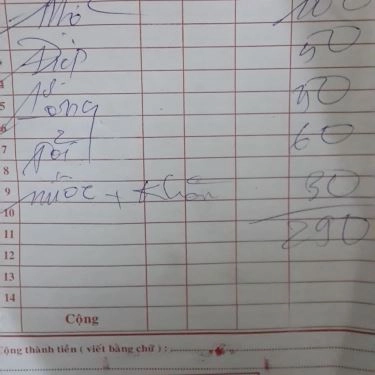 Mỏ 100
Điệp 50
4
5 Tổng 50
6
7 Tỏi 60
8
9 nước + Khăn 30
10
11 290
12
13
14
Cộng
Cộng thành tiền ( viết bằng chữ ) :